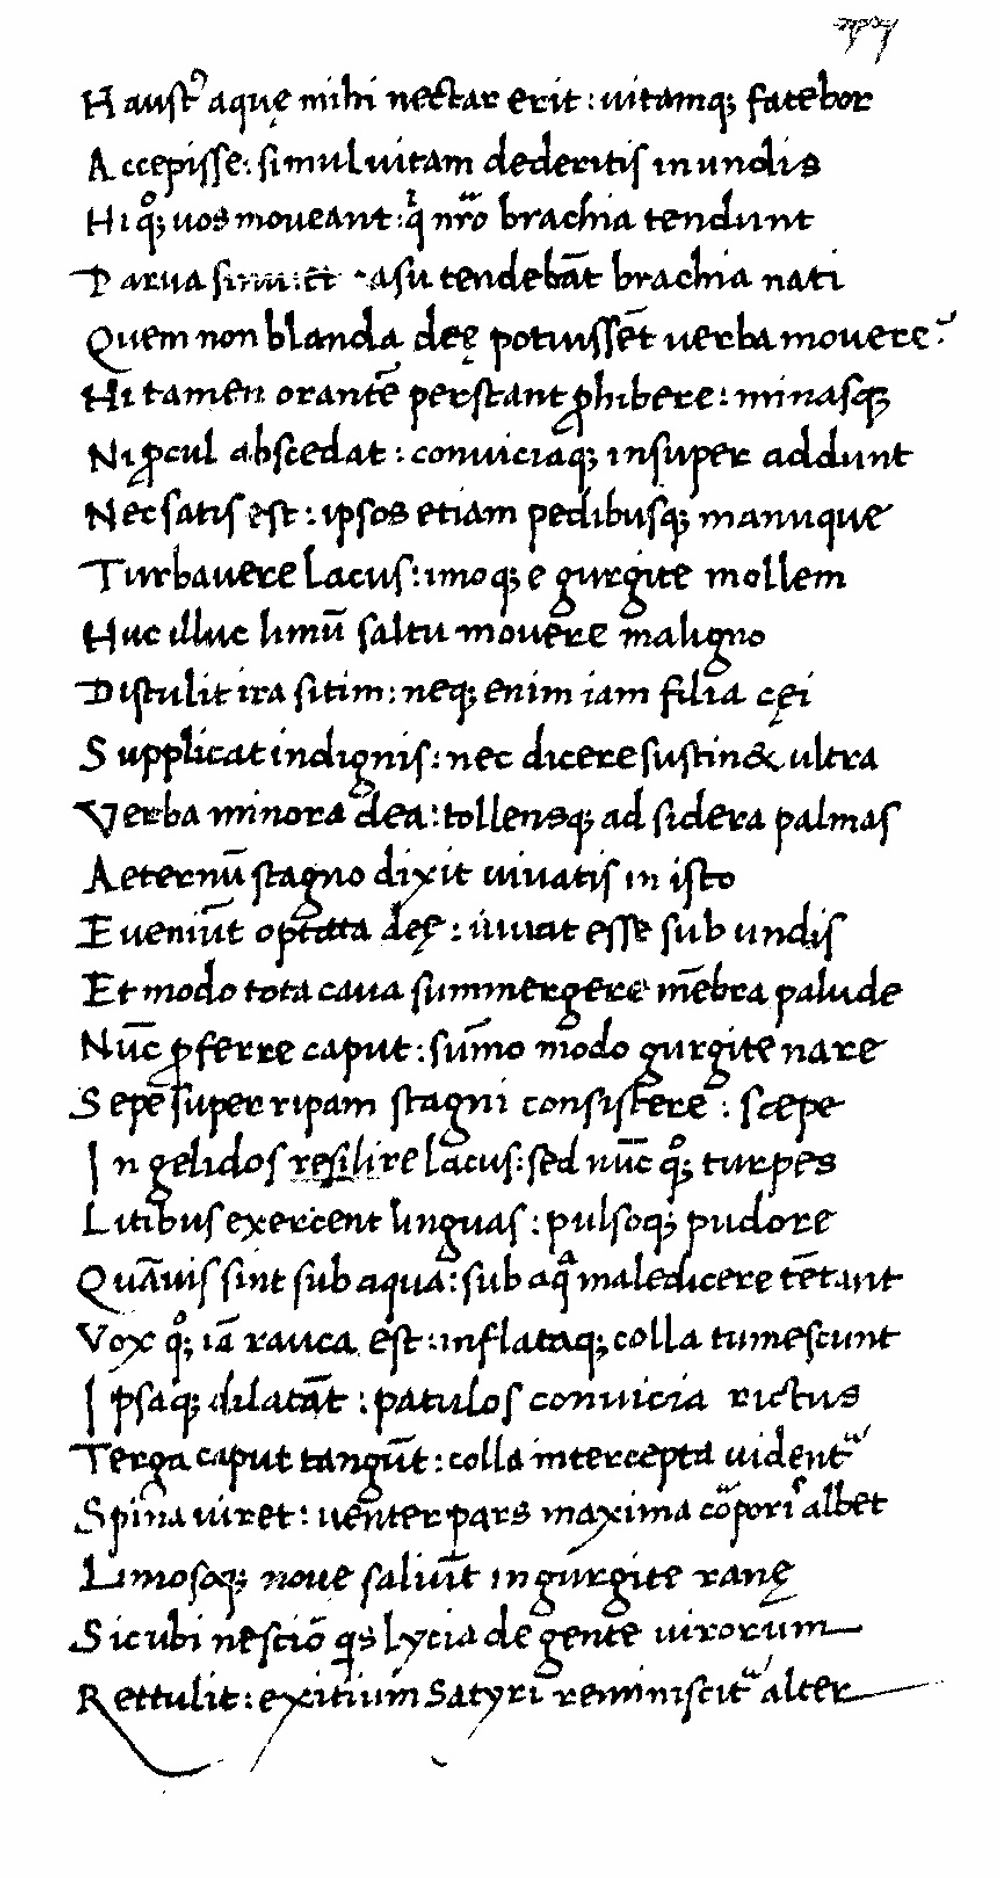 Haustꝰ aquę mihi nectar erit: uitamq; fatebor
Accepisse: simul uitam dederitis in undis
Hi qͦ; uos moueant: qͥ nr̄o brachia tendunt
Parua sinu: et casu tendebāt brachia nati
Quem non blanda deę potuissēt uerba mouere?
Hi tamen orantē perstant ꝓhibere: minasq;
Ni ꝓcul abscedat: conuiciaq; insuper addunt
Nec satis est: ipsos etiam pedibusq; manuque
Turbauere lacus: imoq; e gurgite mollem
Huc illuc limū saltu mouere maligno
Distulit ira sitim: neq; enim iam filia cęi
Supplicat indignis: nec dicere sustin& ultra
Verba minora dea: tollensq; ad sidera palmas
Aeternū stagno dixit uiuatis in isto
Eueniūt optata deę: iuuat esse sub undis
Et modo tota caua summergere mēbra palude
Nūc ꝓferre caput: sūmo modo gurgite nare
Sepe super ripam stagni consistere: scepe
In gelidos resilire lacus: sed nūc qͦ; turpes
Litibus exercent linguas: pulsoq; pudore
Quāuis sint sub aqua: sub aqᷓ maledicere tētant
Vox qͦ; iā rauca est: inflataq; colla tumescunt
Ipsaq; dilatāt: patulos conuicia rictus
Terga caput tangūt: colla intercepta uidentᷓ
Spina uiret: uenter pars maxima cōporiˢ albet
Limosoq; noue saliūt in gurgite ranę
Sic ubi nesciō qs lycia de gente uirorum
Rettulit: exitium Satyri reminiscitᷓ alter